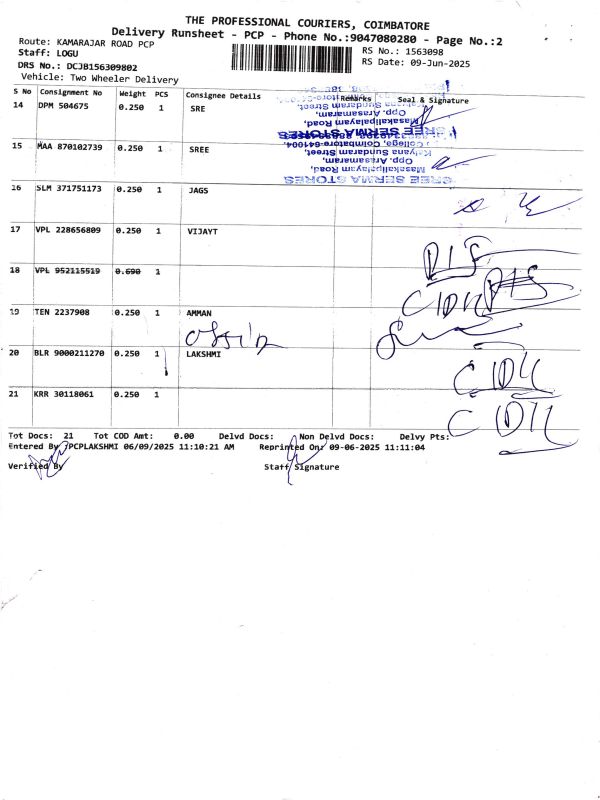 THE PROFESSIONAL COURIERS, COIMBATORE
Delivery Runsheet - PCP - Phone No.:9047080280 - Page No.:2
Route: KAMARAJAR ROAD PCP
Staff: LOGU
RS No.: 1563098
DRS No.: DCJB156309802
RS Date: 09-Jun-2025
Vehicle: Two Wheeler Delivery
S No Consignment No Weight PCS Consignee Details Remarks Seal & Signature
14 DPM 504675 0.250 1 SRE
15 MAA 870102739 0.250 1 SREE
SREE SERMA STORES
Masakalipalayam Road,
Opp. Arasamaram,
Kalyana Sundaram Street,
SREE SERMA STORES
Masakalipalayam Road,
Opp. Arasamaram,
16 SLM 371751173 0.250 1 JAGS
17 VPL 228656809 0.250 1 VIJAYT
18 VPL 952115519 0.690 1
19 TEN 2237908 0.250 1 AMMAN
20 BLR 9000211270 0.250 1 LAKSHMI
21 KRR 30118061 0.250 1
Tot Docs: 21 Tot COD Amt: 0.00 Delvd Docs: Non Delvd Docs: Delvy Pts:
Entered By PCPLAKSHMI 06/09/2025 11:10:21 AM Reprinted On: 09-06-2025 11:11:04
Verified By Staff Signature